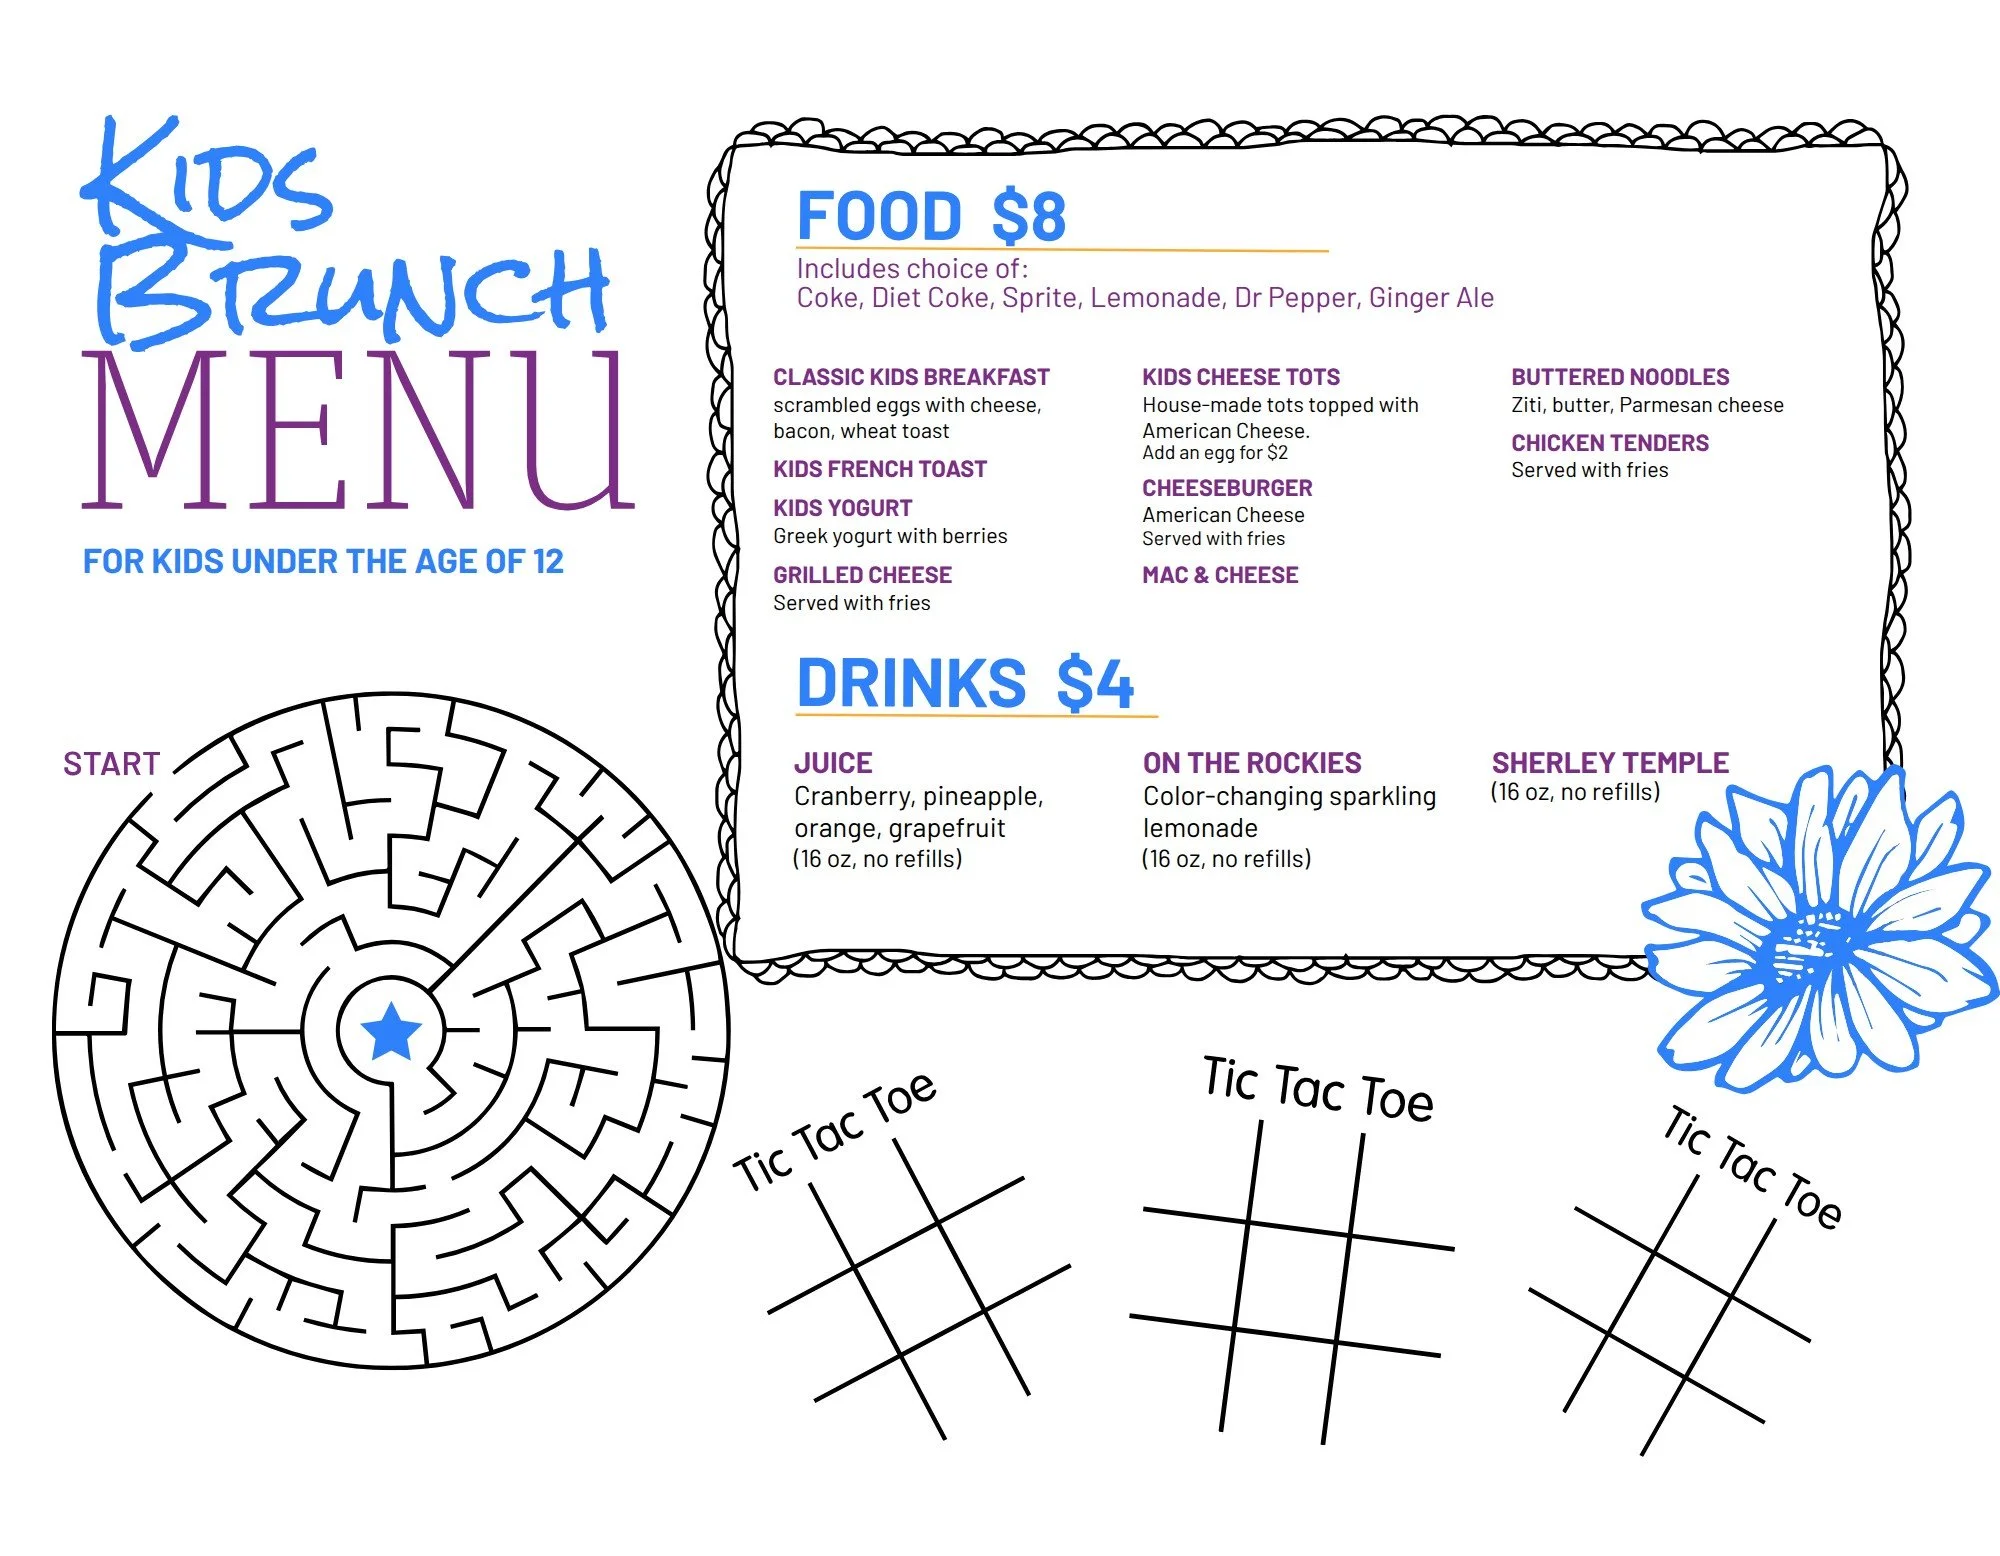 Kids
Brunch
MENU
FOR KIDS UNDER THE AGE OF 12
FOOD $8
Includes choice of:
Coke, Diet Coke, Sprite, Lemonade, Dr Pepper, Ginger Ale
CLASSIC KIDS BREAKFAST
scrambled eggs with cheese,
bacon, wheat toast
KIDS FRENCH TOAST
KIDS YOGURT
Greek yogurt with berries
GRILLED CHEESE
Served with fries
KIDS CHEESE TOTS
House-made tots topped with
American Cheese.
Add an egg for $2
CHEESEBURGER
American Cheese
Served with fries
MAC & CHEESE
BUTTERED NOODLES
Ziti, butter, Parmesan cheese
CHICKEN TENDERS
Served with fries
DRINKS $4
JUICE
Cranberry, pineapple,
orange, grapefruit
(16 oz, no refills)
ON THE ROCKIES
Color-changing sparkling
lemonade
(16 oz, no refills)
SHERLEY TEMPLE
(16 oz, no refills)
START
Tic Tac Toe
Tic Tac Toe
Tic Tac Toe